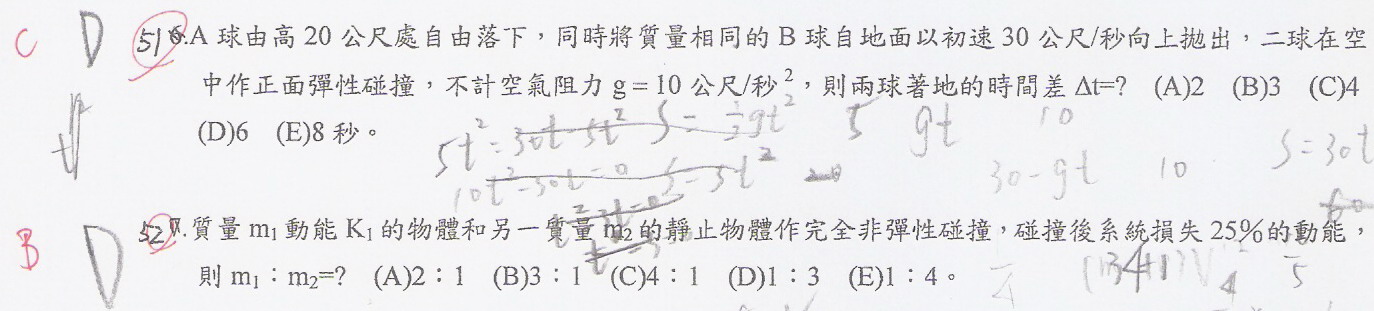 C D 51 6.A 球由高 20 公尺處自由落下，同時將質量相同的 B 球自地面以初速 30 公尺/秒向上拋出，二球在空
中作正面彈性碰撞，不計空氣阻力 g = 10 公尺/秒²，則兩球著地的時間差 Δt=? (A)2 (B)3 (C)4
(D)6 (E)8 秒。
5t²=30t-5t² S=½gt² 5 gt 10
10t²-30t=0 S=5t² 30-gt 10 S=30t
B D 52 7.質量 m₁ 動能 K₁ 的物體和另一質量 m₂ 的靜止物體作完全非彈性碰撞，碰撞後系統損失 25%的動能，
則 m₁：m₂=? (A)2：1 (B)3：1 (C)4：1 (D)1：3 (E)1：4。